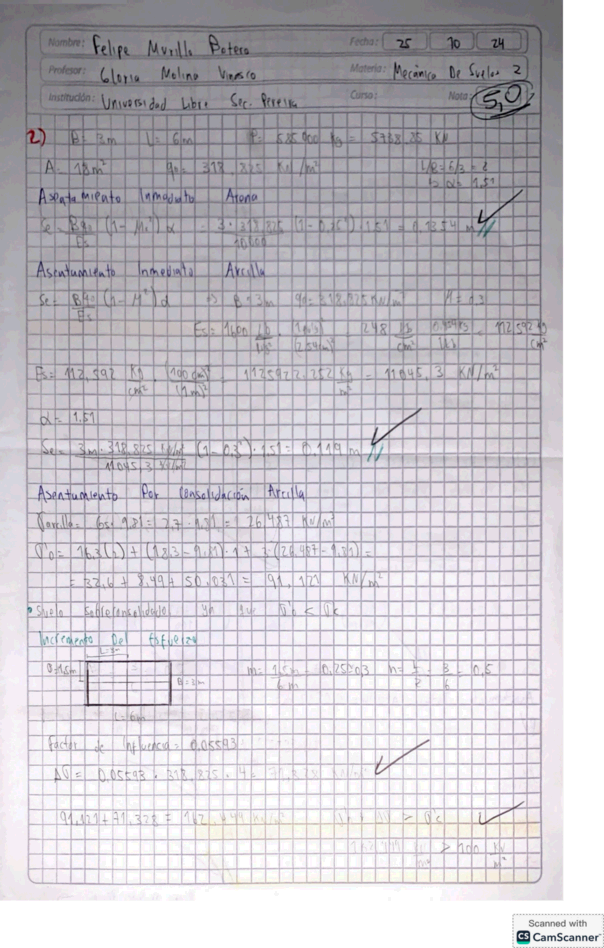 Nombre: Felipe Murillo Botero Fecha: 25 10 24
Profesor: Gloria Molina Vinasco Materia: Mecánica De Suelos 2
Institución: Universidad Libre Sec. Pereira Curso: Nota: 5,0
2) B= 3m L= 6m P= 585000 kg = 5738,85 KN
A= 18m² q₀= 318,825 KN/m² L/B=6/3=2
α=1.51
Asentamiento Inmediato Arena
Se= Bq₀/Es (1-μ²) α = 3·318,825/10000 (1-0,25²)·1.51= 0,1354 m
Asentamiento Inmediato Arcilla
Se= Bq₀/Es (1-μ²) α => B=3m q₀=318,825KN/m² μ=0.3
Es= 1600 lb/ · (1)²/(2.54cm)² = 248 lb/cm² · 0,454kg/1lb = 112,592 kg/cm²
Es= 112,592 kg/cm² · (100 cm)²/(1m)² = 1125922.252 kg/m² = 11045,3 KN/m²
α= 1.51
Se= 3m·318,825 KN/m²/11045,3 KN/m² (1-0,3²)·1.51= 0.119 m
Asentamiento Por Consolidación Arcilla
= Gs·9,81= 2,7·9,81= 26,487 KN/m³
σ'₀= 16,3(2) + (18,3-9,81)·1 + 3·(26,487-9,81)=
= 32,6 + 8,49 + 50,031= 91,121 KN/m²
• Suelo sobreconsolidado ya que σ'₀ < σ'c
Incremento Del Esfuerzo
L=3m
B=1.5m
B=3m
L=6m
m= 1,5m/6m = 0,25≈0,3 n= = 3/6 = 0,5
Factor de Influencia= 0,05593
Δσ= 0,05593·318,825·4= 71,328 KN/m²
91,121+71,328= 162,449 KN/m² σ'₀ + Δσ > σ'c
162,449 KN/m² > 100 KN/m²
Scanned with
CS CamScanner